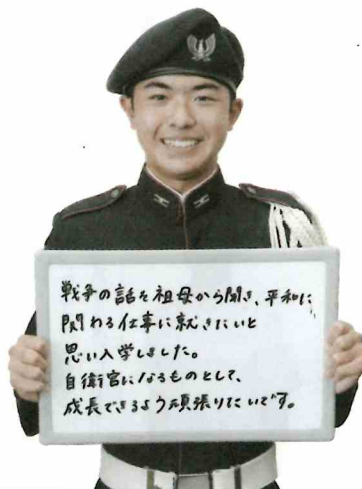 戦争の話を祖母から聞き、平和に
関わる仕事に就きたいと
思い入学しました。
自衛官になるものとして、
成長できるよう頑張りたいです。